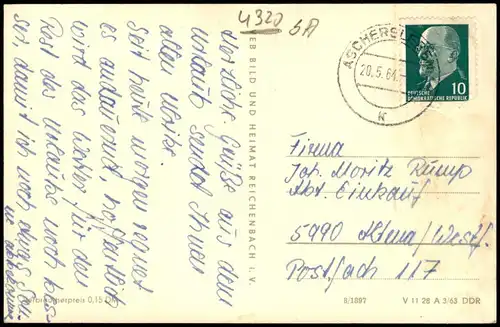 4320
ASCHERSL
20.5.64
K
10
DEUTSCHE
DEMOKRATISCHE REPUBLIK
Herzliche Grüße aus dem
Urlaub sendet Ihnen
allen
Seit heute morgen regnet
es andauernd hoffentlich
wird das Wetter für den
Rest des Urlaubs noch bes-
ser, damit ich noch etwas
EB BILD UND HEIMAT REICHENBACH I. V.
Firma
Joh. Moritz Rump
Abt. Einkauf
5990 Altena/Westf.
Postfach 117
erpreis 0,15 D
8/1897
V 11 28 A 3/63 DDR